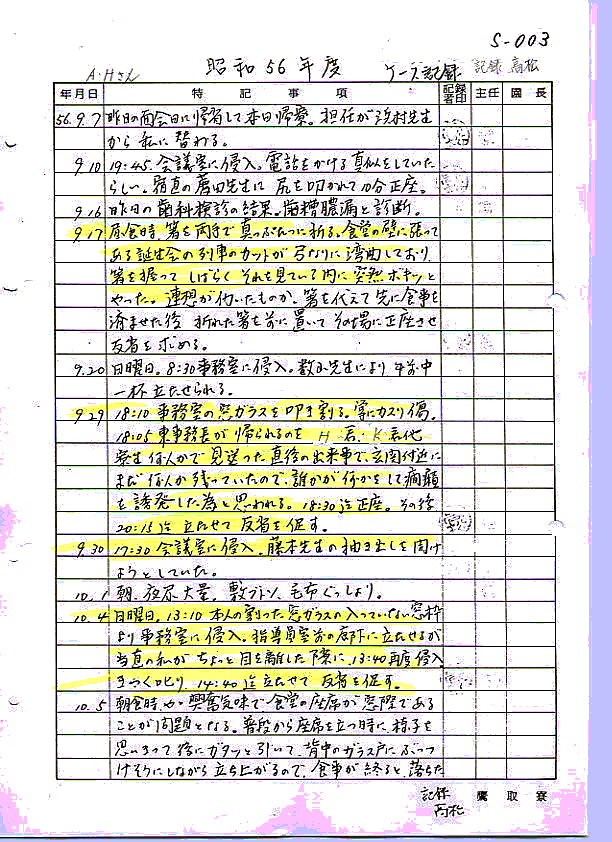 S-003
A・Hさん 昭和56年度 ケース記録 記録 高松
年月日 特記事項 記録者印 主任 園長
56.9.7 昨日の面会日に帰省して本日帰寮。担任が浜村先生
から私に替わる。
9.10 19:45.会議室に侵入。電話をかける真似をしていた
らしい。宿直の薦田先生に尻を叩かれて10分正座。
9.16 昨日の歯科検診の結果。歯槽膿漏と診断。
9.17 昼食時、箸を両手で真っぷたつに折る。食堂の壁に張って
ある誕生会の列車のカットが弓なりに湾曲しており
箸を握ってしばらくそれを見ていて内に突然ポキッと
やった。連想が働いたものか。箸を代えて先に食事を
済ませた後 折れた箸を前に置いてその場に正座させ
反省を求める。
9.20 日曜日。8:30事務室に侵入。先生により午前中
一杯立たせられる。
9.29 18:10 事務室の窓ガラスを叩き割る。掌にカスリ傷。
18:05東事務長が帰られるのを H君、K君他
寮生何人かで見送った直後の出来事で、玄関付近に
まだ何人か残っていたので、誰かが何かをして癇癪
を誘発した為と思われる。18:30迄正座。その後
20:15迄 立たせて反省を促す。
9.30 17:30 会議室に侵入。藤本先生の抽き出しを開け
ようとしていた。
10.1 朝、夜尿大量。敷ブトン、毛布ぐっしょり。
10.4 日曜日。13:10 本人の割った窓ガラスの入っていない窓枠
より事務室に侵入。指導員室前の廊下に立たせるが
当直の私がちょっと目を離した隙に、13:40再度侵入
きつく叱り、14:40迄立たせて反省を促す。
10.5 朝食時やゝ興奮気味で食堂の座席が窓際である
ことが問題となる。普段から座席を立つ時に、椅子を
思いきって後にガタッと引いて、背中のガラス戸にぶつ
けそうにしながら立ち上がるので、食事が終ると、落ちた
記録 高松 鷹取寮